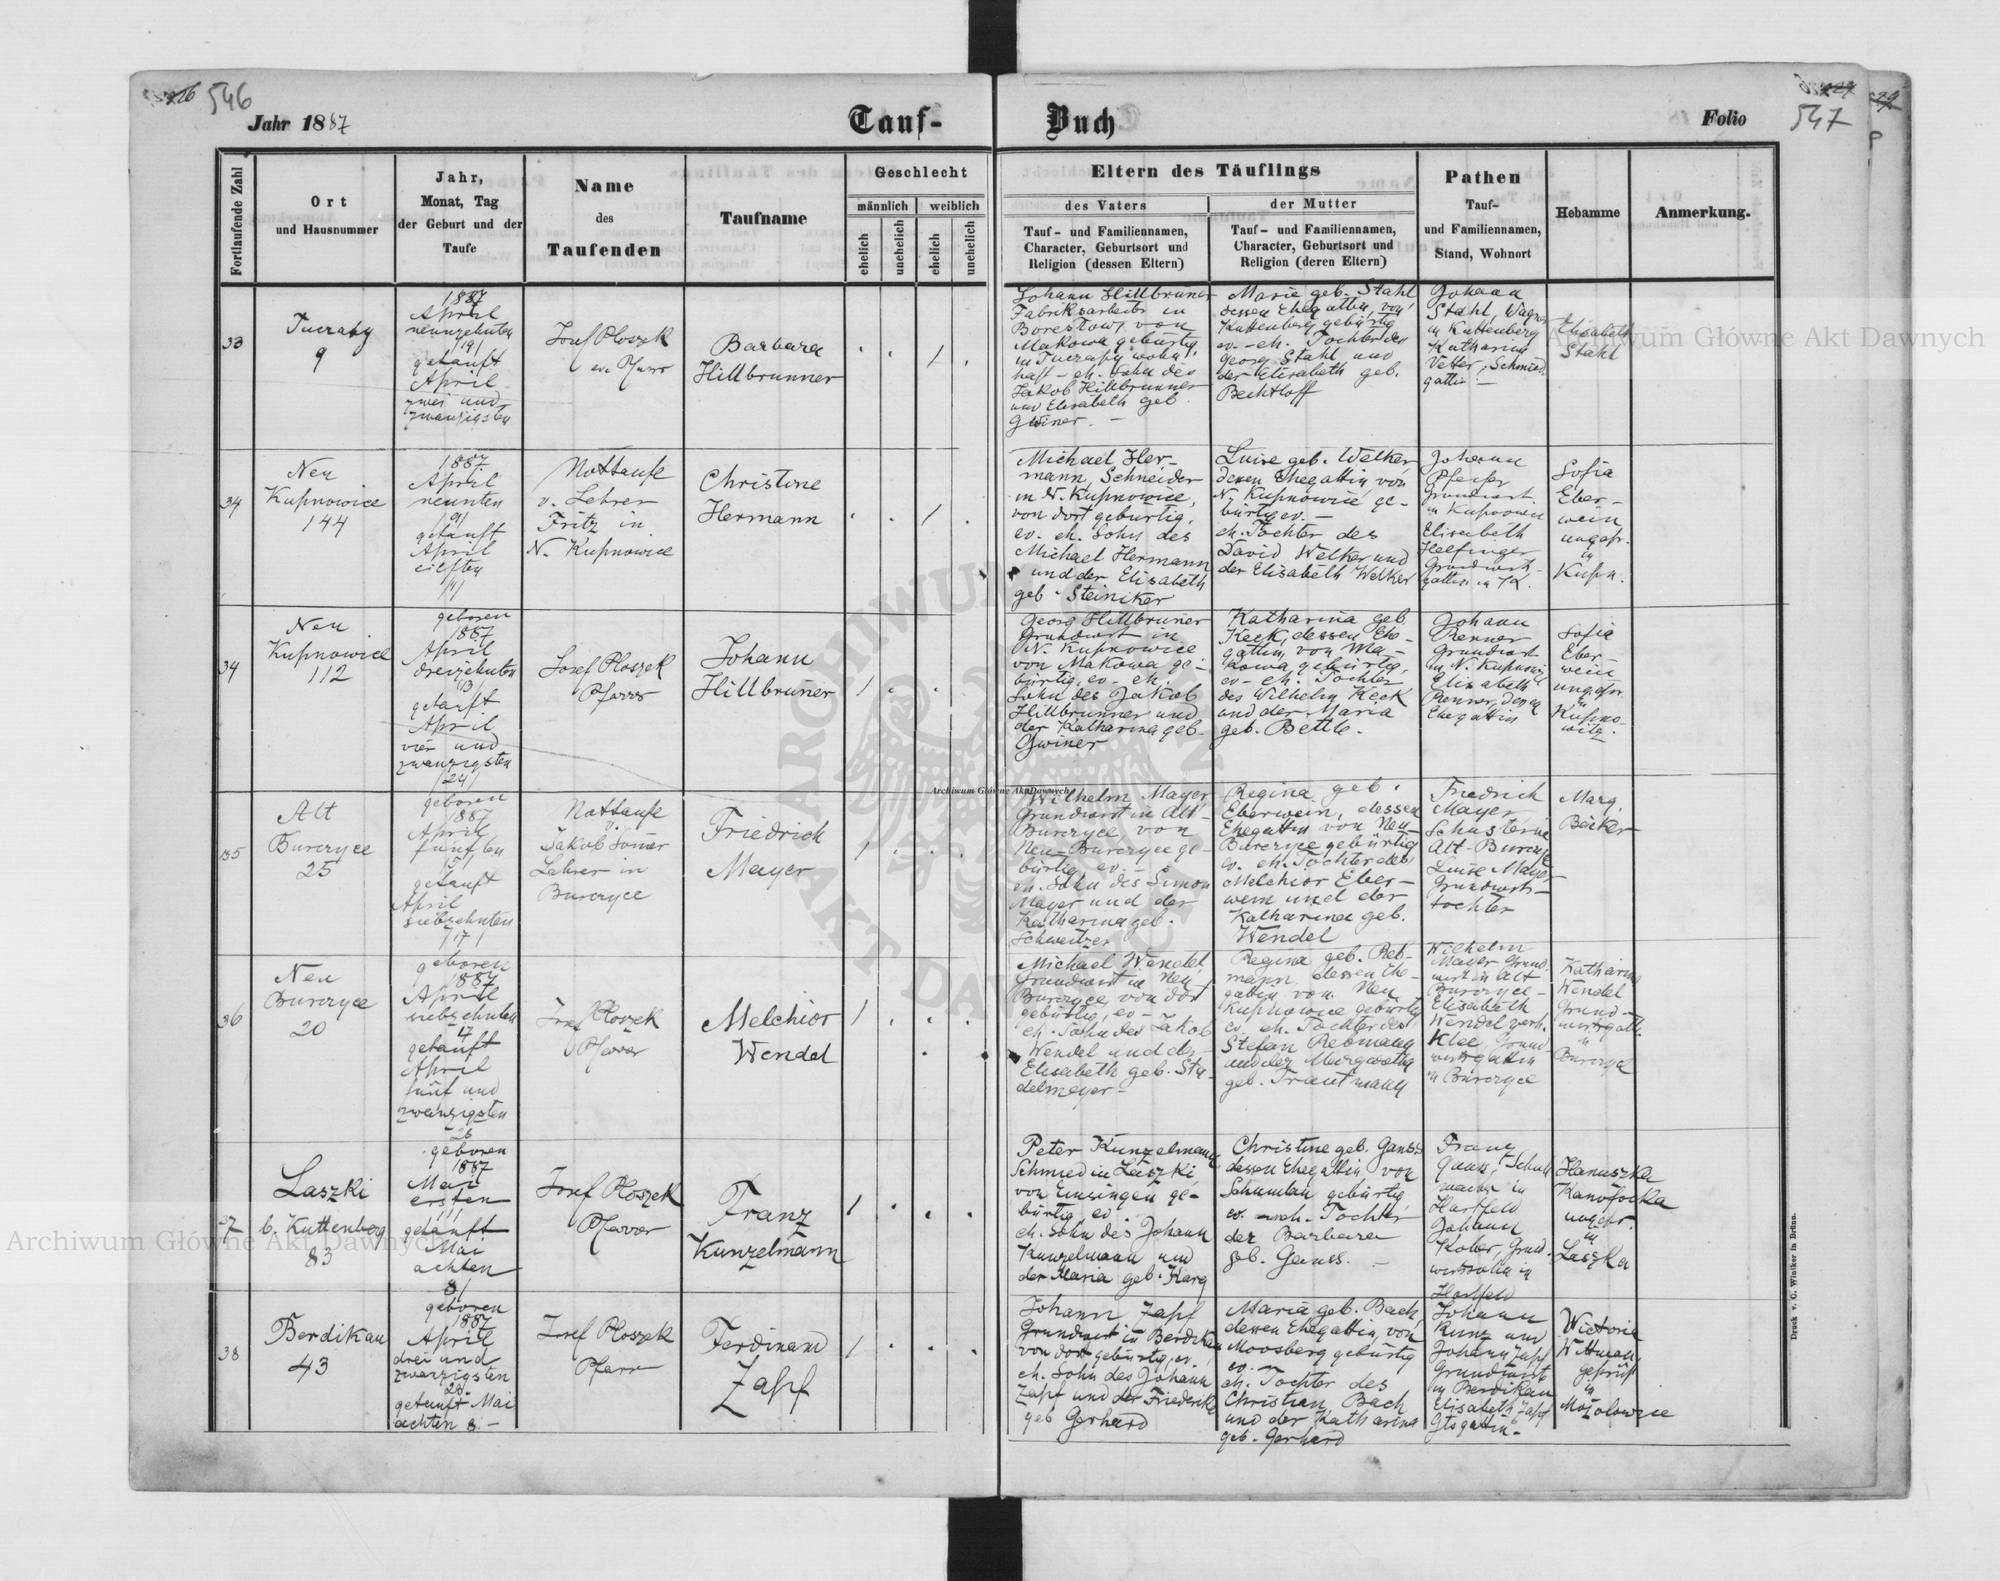 546
Jahr 1887
Tauf-
Buch
Folio
547
Fortlaufende Zahl
Ort
und Hausnummer
Jahr,
Monat, Tag
der Geburt und der
Taufe
Name
des
Taufenden
Taufname
Geschlecht
männlich
weiblich
ehelich
unehelich
ehelich
unehelich
Eltern des Täuflings
des Vaters
der Mutter
Tauf- und Familiennamen,
Character, Geburtsort und
Religion (dessen Eltern)
Tauf- und Familiennamen,
Character, Geburtsort und
Religion (deren Eltern)
Pathen
Tauf-
und Familiennamen,
Stand, Wohnort
Hebamme
Anmerkung.
33
Tuczapy
9
1887
April
neunzehnten
19/
getauft
April
zwei und
zwanzigsten
Josef Ploszek
ev. Pfarrer
Barbara
Hillbrunner
Johann Hillbruner
Fabriksarbeiter in
von
Makowa gebürtig
in Tuczapy wohn-
haft - eh. Sohn des
Jakob Hillbrunner
und Elisabeth geb.
Gwiner. -
Marie geb. Stahl
dessen Ehegattin, von
Kuttenberg gebürtig
ev. - eh. Tochter des
Georg Stahl und
der Elisabeth geb.
Bechtloff
Johann
Stahl, Wagner
in Kuttenberg
Katharina
Vetter, Schmied-
gattin -
Elisabeth
Stahl
34
Neu
Kupnowice
144
1887
April
neunten
9/
getauft
April
eilften
11/
Nottaufe
v. Lehrer
Fritz in
N. Kupnowice
Christine
Hermann
Michael Her-
mann, Schneider
in N. Kupnowice,
von dort gebürtig,
ev. eh. Sohn des
Michael Hermann
und der Elisabeth
geb. Steiniker
Luise geb. Welker
dessen Ehegattin von
N. Kupnowice ge-
bürtig ev. -
eh. Tochter des
David Welker und
der Elisabeth Welker
Johann
Pfeifer
Grundwirt
in Kupnowice
Elisabeth
Helfinger
Grundwirt-
gattin in K.
Sofia
Eber-
wein
ungepr.
in
Kupn.
34
Neu
Kupnowice
112
geboren
1887
April
dreizehnten
13
getauft
April
vier und
zwanzigsten
/24/
Josef Ploszek
Pfarrer
Johann
Hillbruner
Georg Hillbruner
Grundwirt in
N. Kupnowice
von Makowa ge-
bürtig, ev. eh.
Sohn des Jakob
Hillbrunner und
der Katharina geb.
Gwiner
Katharina geb.
Keck, dessen Ehe-
gattin, von Ma-
kowa gebürtig,
ev. eh. Tochter
des Wilhelm Keck
und der Maria
geb. Bettle.
Johann
Renner
Grundwirt
in N. Kupnowice
Elisabeth
Renner, dessen
Ehegattin
Sofia
Eber-
wein
ungepr.
in
Kupno-
witz.
35
Alt
Burczyce
25
geboren
1887
April
fünften
/5/
getauft
April
siebzehnten
/17/
Nottaufe
v.
Jakob
Lehrer in
Burczyce
Friedrich
Mayer
Wilhelm Mayer
Grundwirt in Alt-
Burczyce von
Neu-Burczyce ge-
bürtig ev. -
eh. Sohn des Simon
Mayer und der
Katharina geb.
Schweitzer
Regina geb.
Eberwein, dessen
Ehegattin von Neu-
Burczyce gebürtig
ev. eh. Tochter des
Melchior Eber-
wein und der
Katharina geb.
Wendel
Friedrich
Mayer
Schuster in
Alt-Burczyce
Luise Mayer
Grundwirts-
tochter
Marg.
Becker
36
Neu
Burczyce
20
geboren
1887
April
siebzehnten
17
getauft
April
fünf und
zwanzigsten
25
Josef Ploszek
Pfarrer
Melchior
Wendel
Michael Wendel
Grundwirt in Neu-
Burczyce, von dort
gebürtig, ev. -
eh. Sohn des Jakob
Wendel und der
Elisabeth geb. Sta-
delmeyer -
Regina geb. Reb-
mann, dessen Ehe-
gattin von Neu
Kupnowice gebürtig
ev. eh. Tochter des
Stefan Rebmann
und der Margaretha
geb. Trautmann
Wilhelm
Mayer Grund-
wirt in Alt
Burczyce -
Elisabeth
Wendel verh.
Klee, Grund-
wirtsgattin
in Burczyce
Katharina
Wendel
Grund-
wirtsgattin
in
Burczyce
37
Laszki
b. Kuttenberg
83
geboren
1887
Mai
ersten
/1/
getauft
Mai
achten
8/
Josef Ploszek
Pfarrer
Franz
Kunzelmann
Peter Kunzelmann
Schmied in Laszki,
von Einsingen ge-
bürtig ev.
eh. Sohn des Johann
Kunzelmann und
der Maria geb. Karg
Christine geb. Ganss
dessen Ehegattin von
Schumlau gebürtig
ev. - uneh. Tochter
der Barbara
geb. Ganss. -
Franz
Ganss, Schuh-
macher in
Hartfeld
Johann
Kober, Grund-
wirtssohn in
Hartfeld
Hanuszka
ungepr.
in
Laszka
38
Berdikau
43
geboren
1887
April
drei und
zwanzigsten
23.
getauft Mai
achten 8. -
Josef Ploszek
Pfarrer
Ferdinand
Zapf
Johann Zapf
Grundwirt in Berdikau
von dort gebürtig, ev.
eh. Sohn des Johann
Zapf und der Friedrike
geb. Gerhard
Maria geb. Bach,
dessen Ehegattin, von
Moosberg gebürtig
ev. -
eh. Tochter des
Christian Bach
und der Katharina
geb. Gerhard
Johann
Kunz und
Johann Zapf
Grundwirt
in Berdikau
Elisabeth Zapf
Gtsgattin -
Wictoria
Wittman,
geprüft
in
Mozolowice
Druck v. C. Winiker in Brünn.
Archiwum Główne Akt Dawnych
Archiwum Główne Akt Dawnych
Archiwum Główne Akt Dawnych